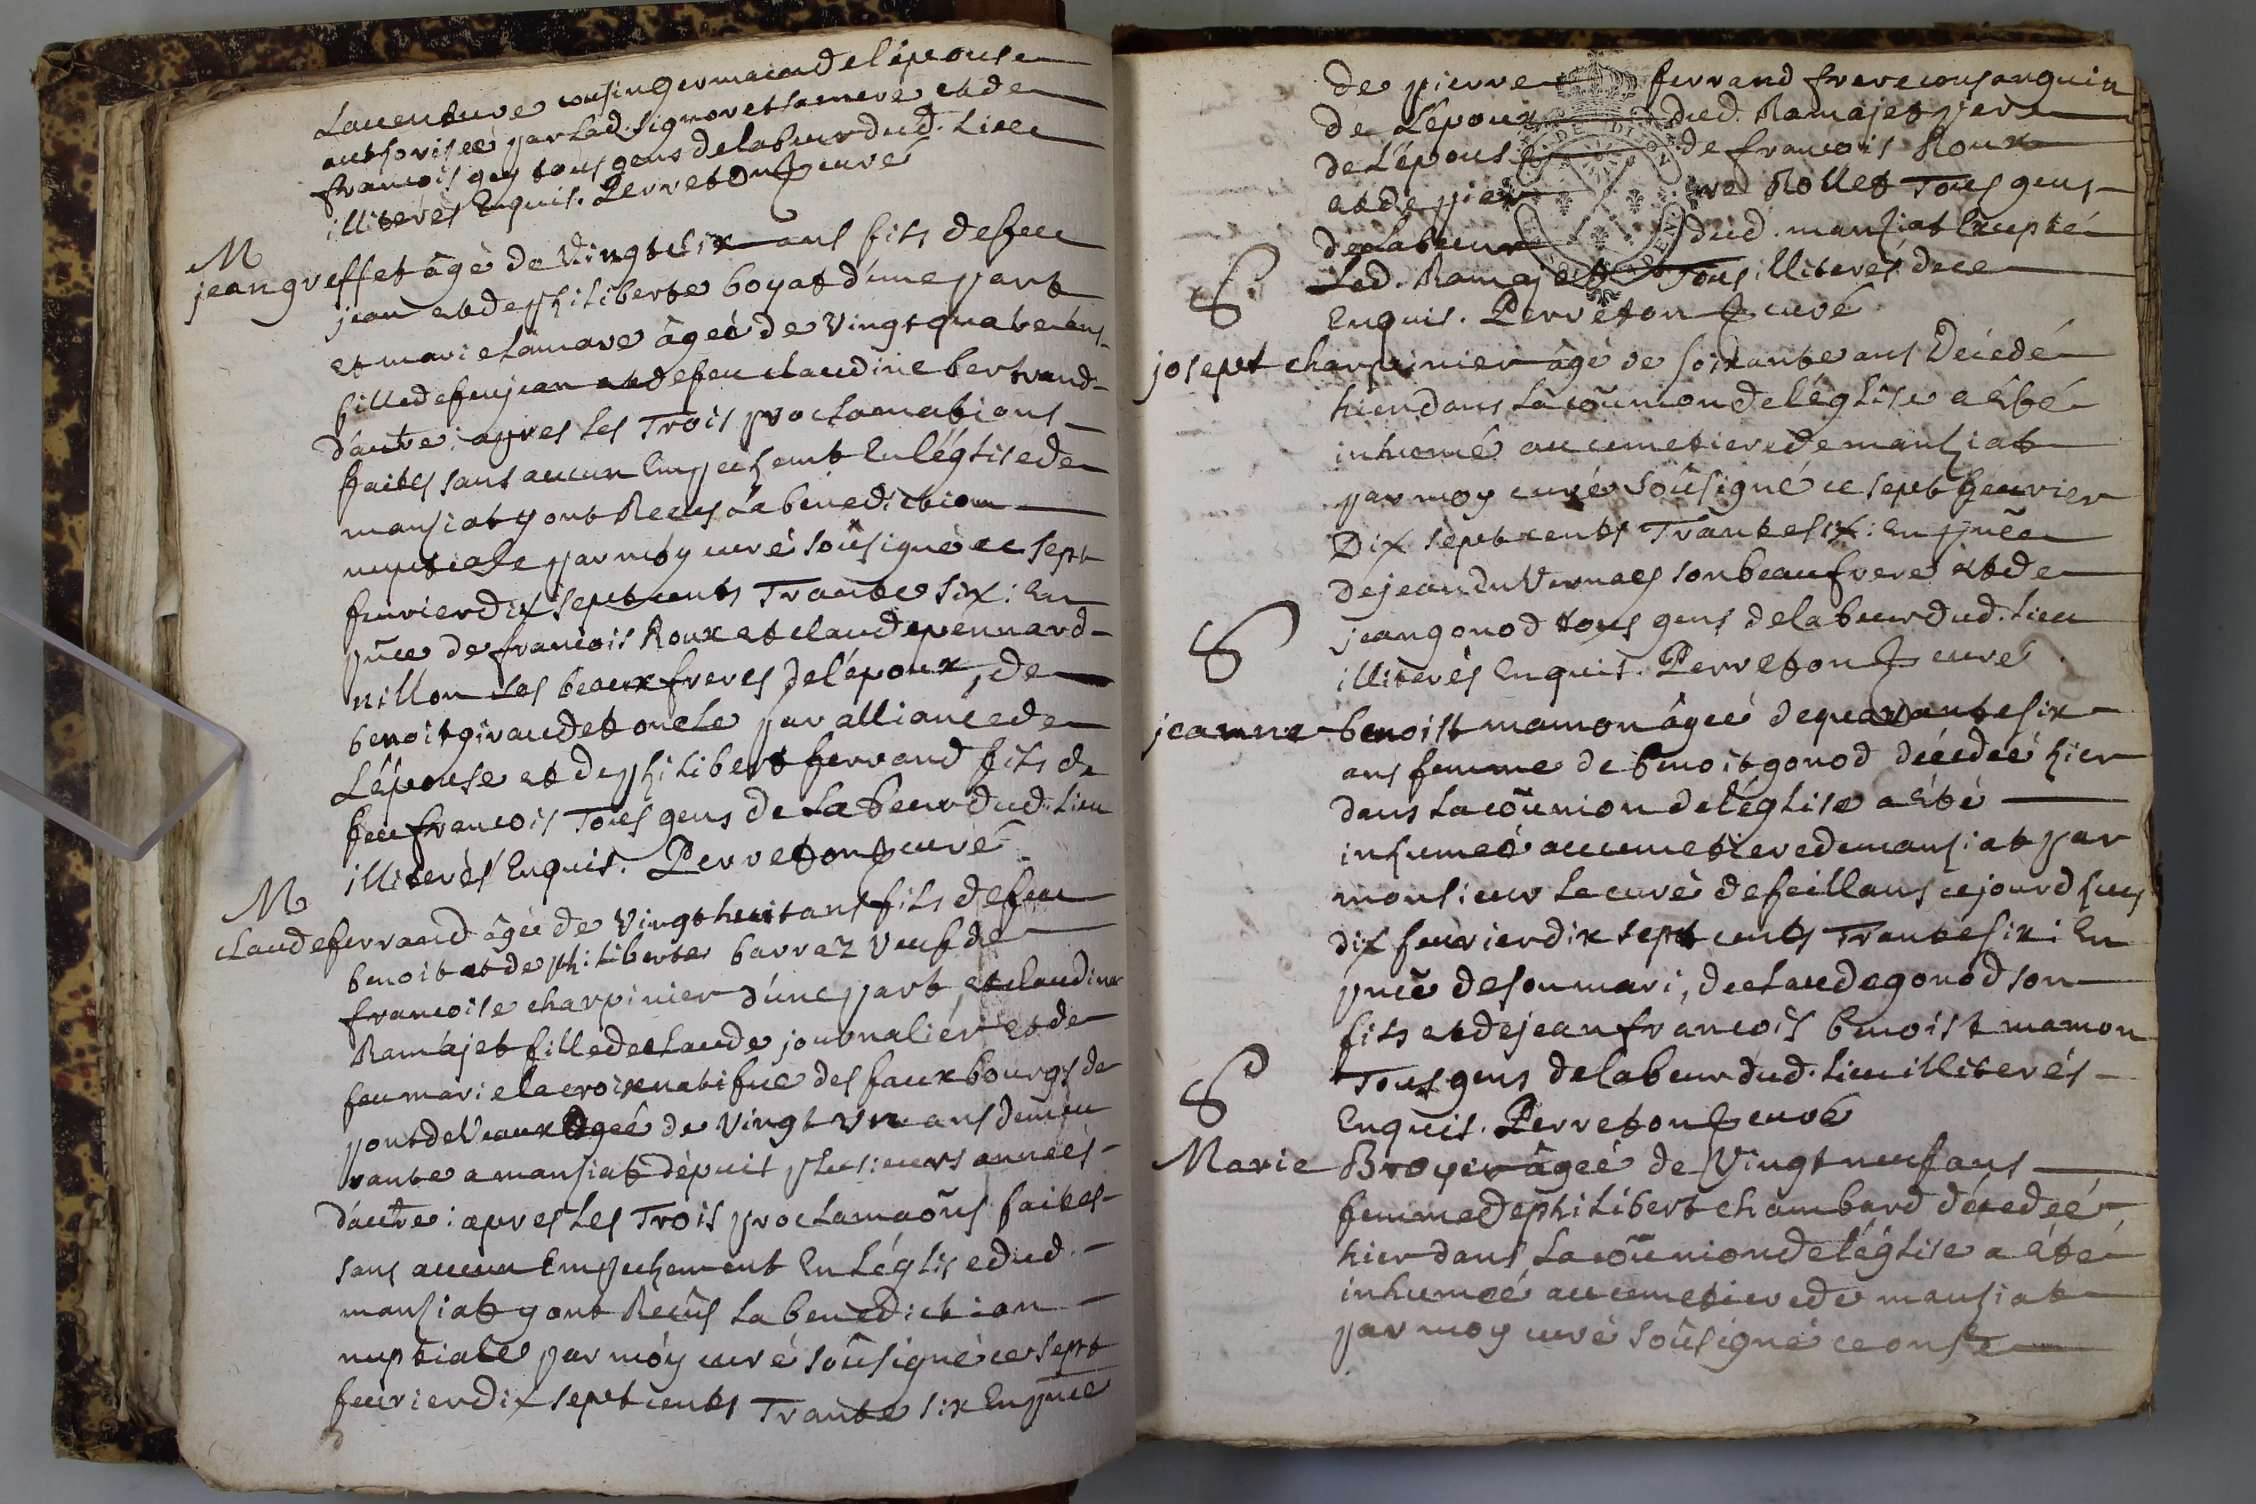 Lauenture cousin germain de l'épouse
authorisée par lad. signoret sa mere et de
francois guy tous gens de labeur dud. Lieu
illiterés Enquis. Perreton curé
M
jean greffet âgé de Vingt six ans fils de feu
jean et de philiberte boyat d'une part
et marie Lamare âgée de Vingt quatre ans
fille de feu jean et de feu claudine bertrand
d'autre : apres les Trois proclamations
faites sans aucun Empechemt En l'église de
mansiat y ont Receus La benediction
nuptiale par moy curé soûsigné ce sept
feurier dix sept cents Trante six : En
pñce de francois Roux et claude pennard
nillon ses beaux freres de l'époux, de
benoit giraudet oncle par alliance de
L'épouse et de philibert ferrand fils de
feu francois Tous gens de Labeur dud. Lieu
illiterés Enquis. Perreton curé
M
claude ferrand âgé de Vingt huit ans fils de feu
benoit et de philiberte barraz Veuf de
francoise charpinier d'une part, et claudine
Ramajet fille de claude journalier et de
feu marie lacroix natifue des faux bourgs de
pont de Veaux âgée de Vingt Vn ans demeu
rante a mansiat dépuis plusieurs années
d'autre : apres Les Trois proclamaõns faites
sans aucun Empechement En L'églis e dud.
mansiat y ont Receûs La benediction
nuptiale par móy curé soûsigné ce sept
feurier dix sept cents Trante six En pñce
de pierre ferrand frere consanguin
de L'époux dud. Ramajet pere
de L'épouse de francois Roux
et de pierre Rollet Tous gens
de Labeur dud. mansiat Excepté
Led. Ramajet Tous illiterés de ce
Enquis. Perreton curé
S
josept charpinier âgé de soixante ans Décedé
hier dans La coũmion de l'église a Eté
inhumé au cimetiere de mansiat
par moy curé soûsigné ce sept feurier
Dix sept cents Trante six : En pñce
de jean du Vernaes son beau frere et de
jean gonod tous gens de labeur dud. Lieu
illiterés Enquis. Perreton curé
S
jeanne benoist mamon âgée de quarante six
ans femme de benoit gonod décedée hier
dans La coũnion de l'église a Eté
inhumée au cimetiere de mansiat par
monsieur Le curé de feillans ce jourdhuy
dix feurier dix sept cents Trante six : En
pñce de son mari, de claude gonod son
fils et de jean francois benoist mamon
Tous gens de labeur dud. Lieu illiterés
Enquis. Perreton curé
S
Marie Broyer âgée de Vingt neuf ans
femme de philibert chambard décedée
hier dans La coũnion de l'église a Eté
inhumée au cimetiere de mansiat
par moy curé soûsigné ce onse